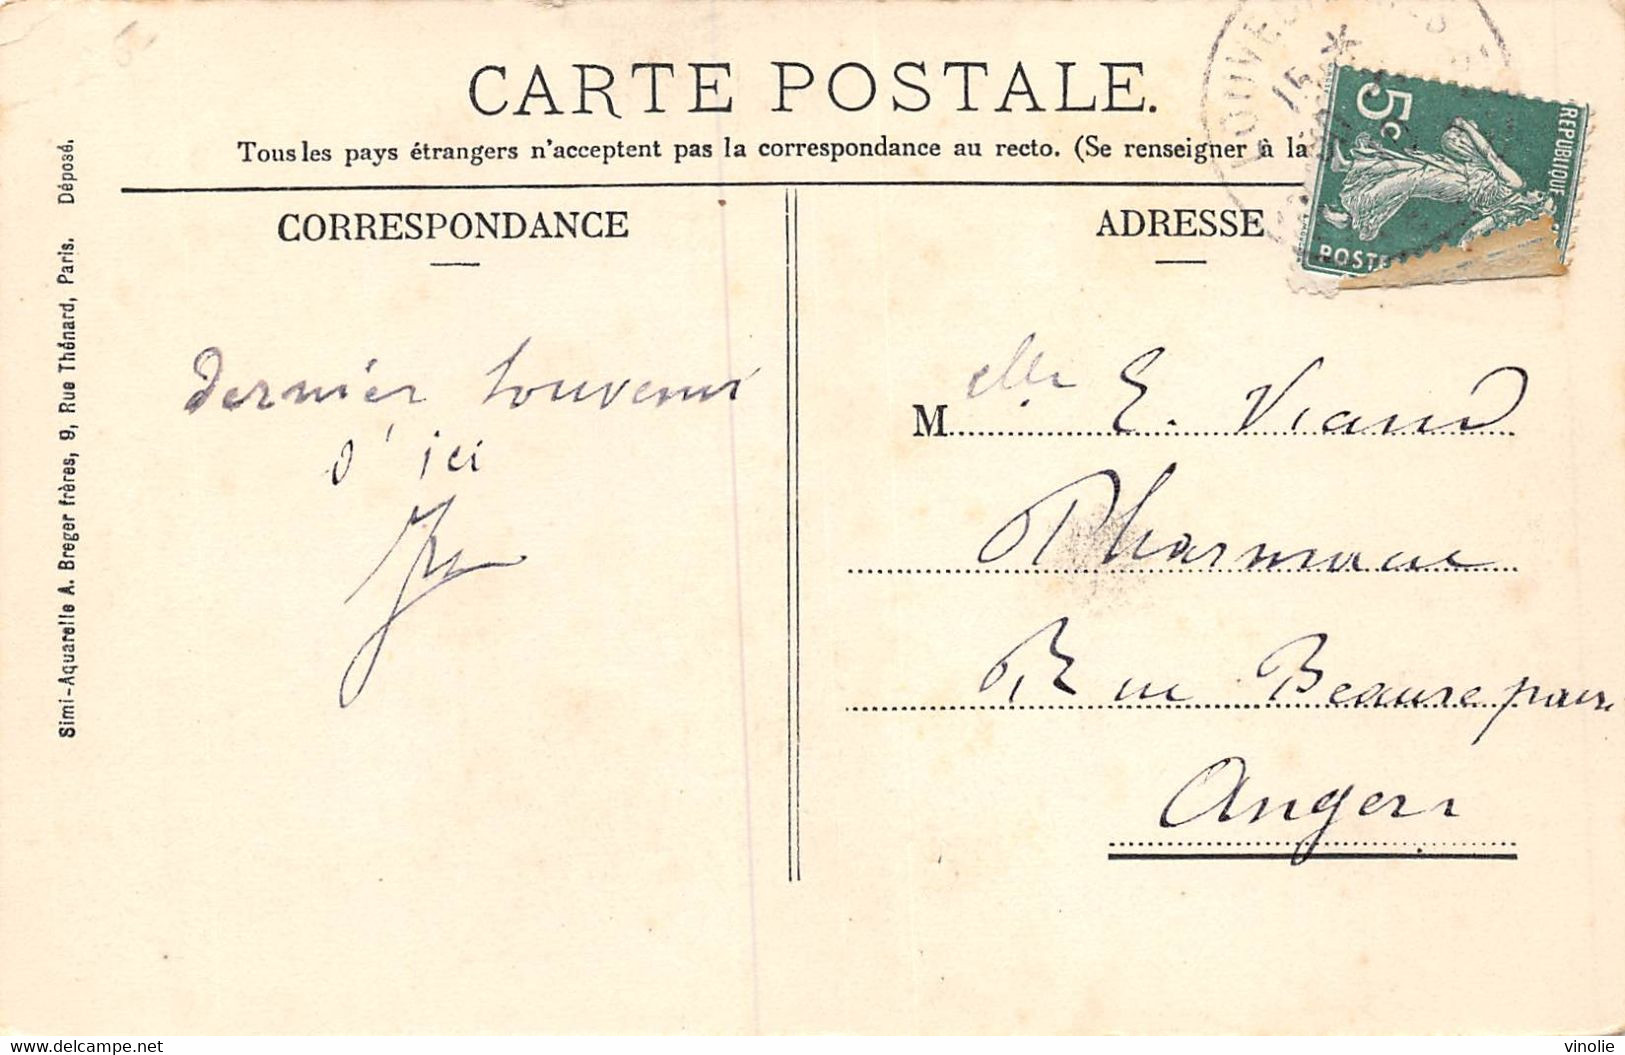 CARTE POSTALE.
Tous les pays étrangers n'acceptent pas la correspondance au recto. (Se renseigner à la
CORRESPONDANCE
ADRESSE
Simi-Aquarelle A. Breger frères, 9, Rue Thénard, Paris. Déposé.
5c
REPUBLIQUE
POSTE
15
dernier souvenir
d'ici
Melle E. Viaud
Pharmacie
Rue Beaurepaire
Angers
delcampe.net
vinolie